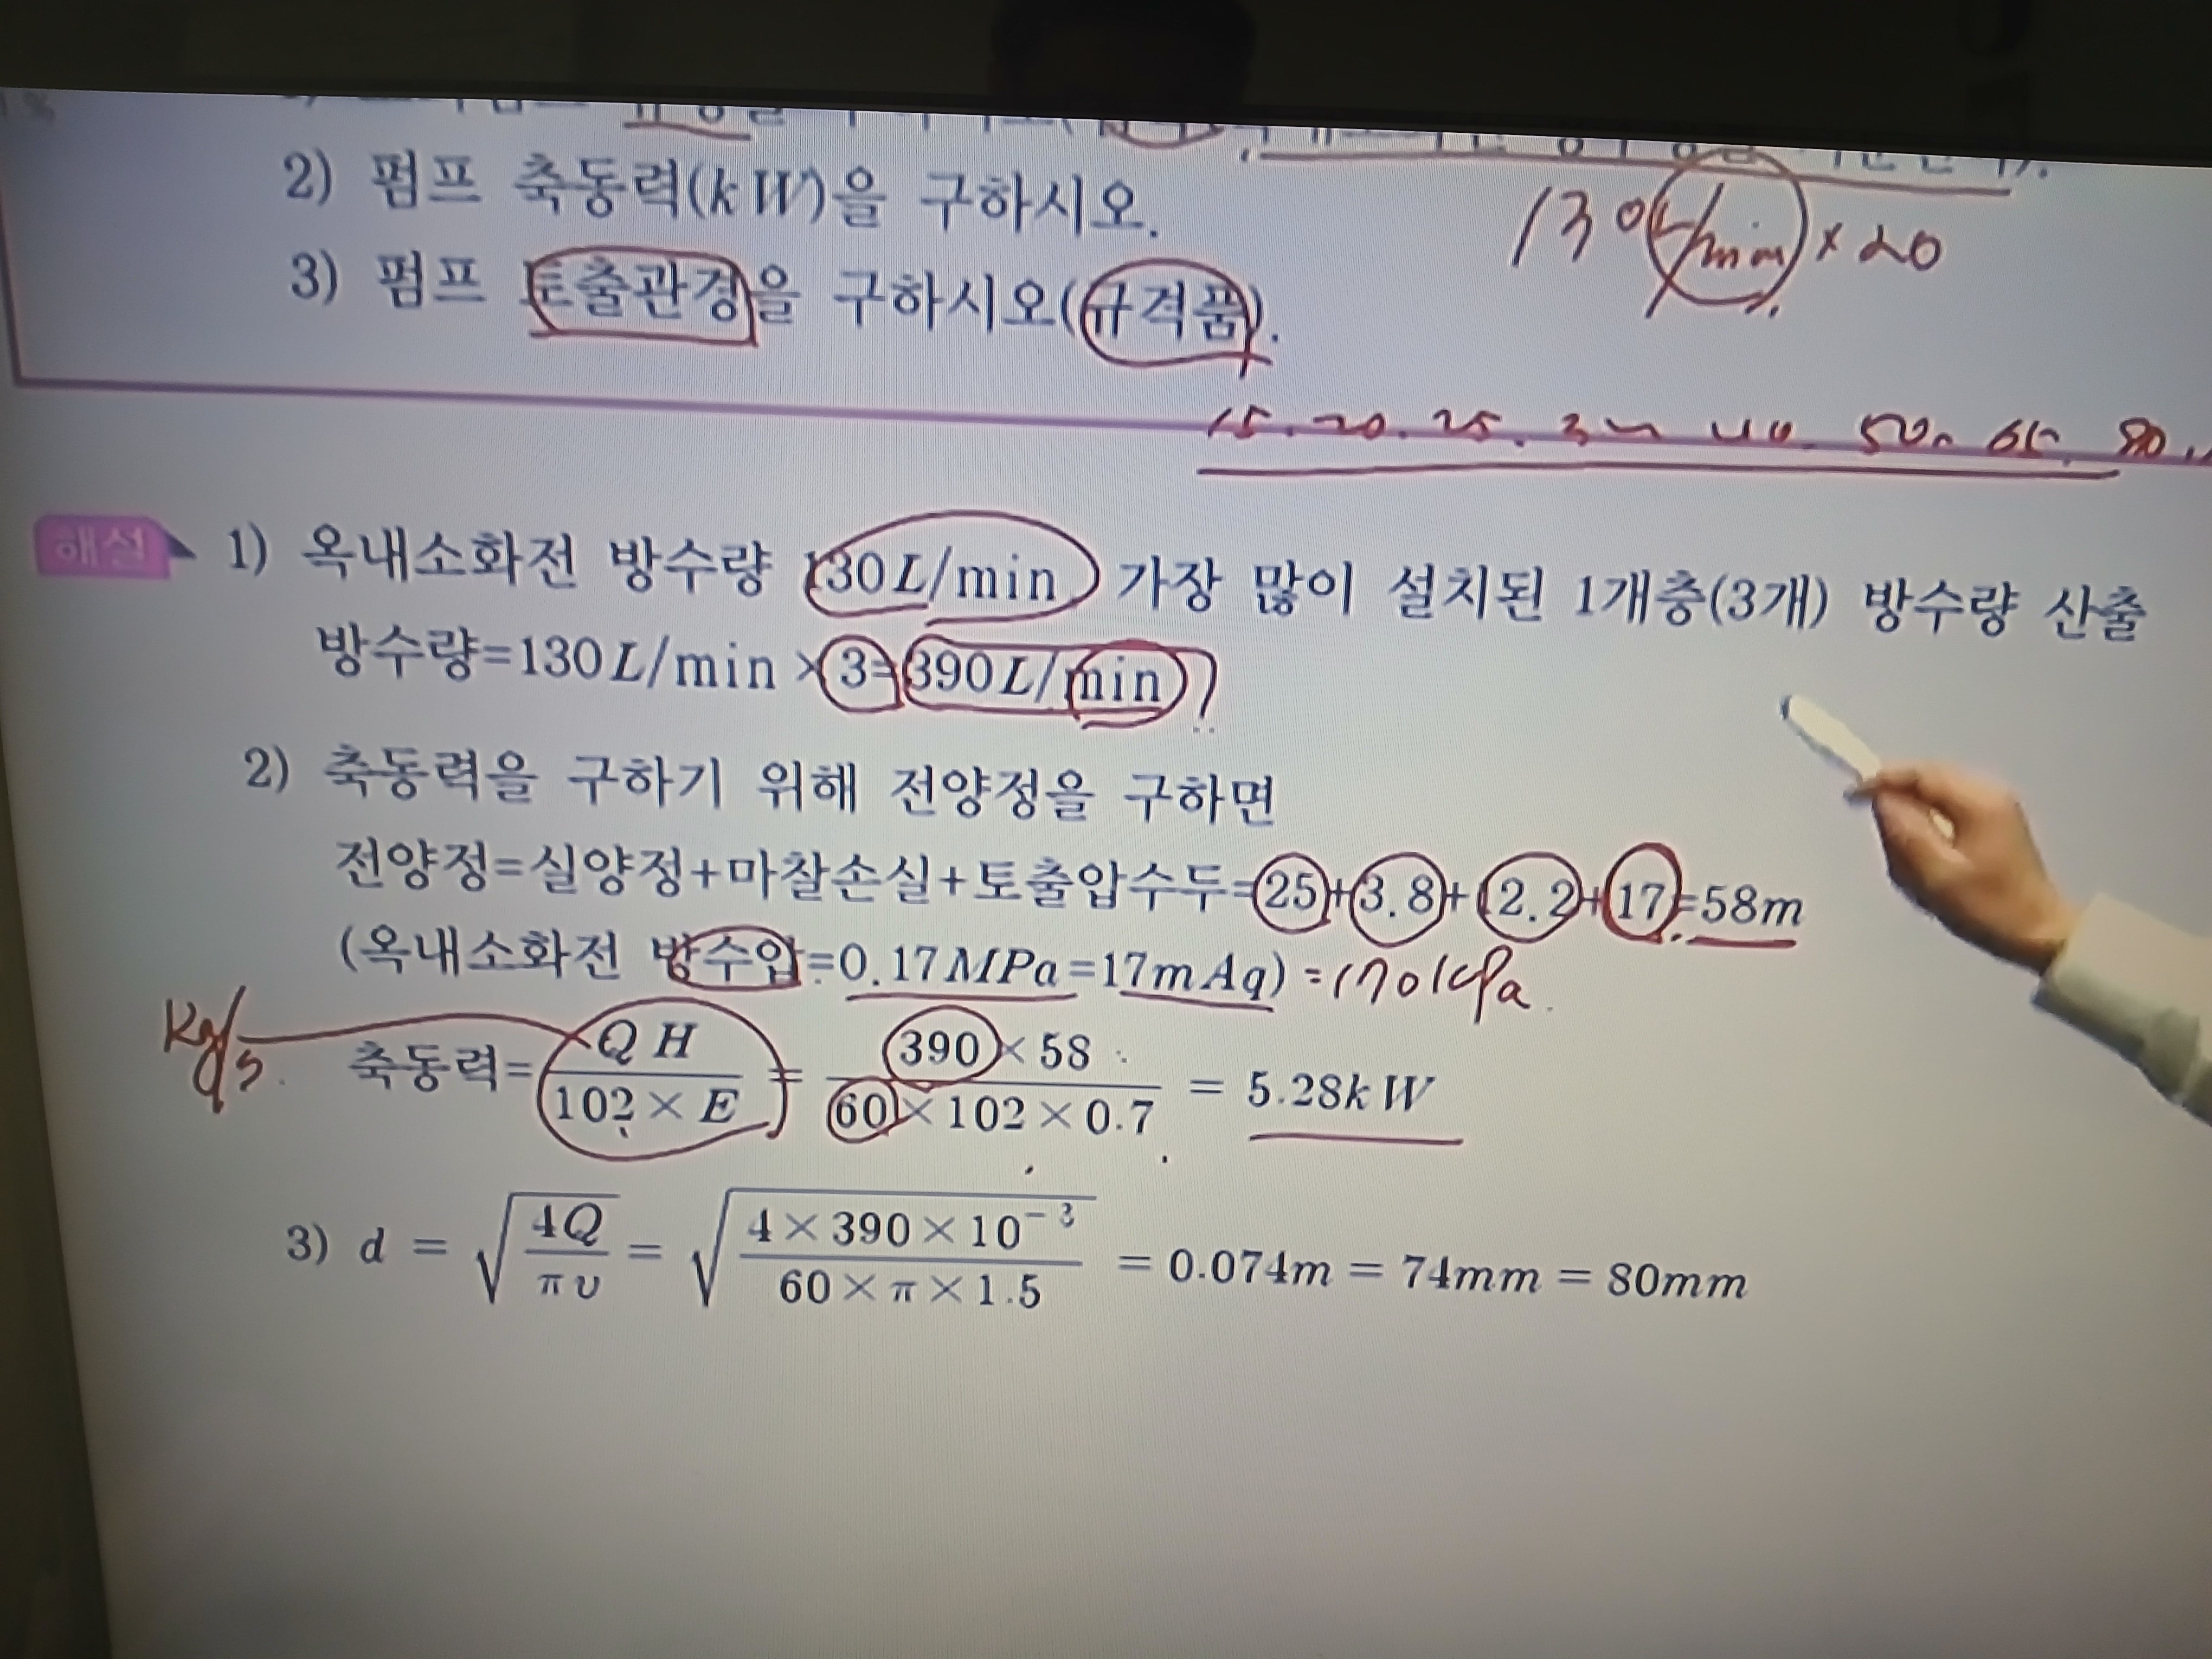 2) 펌프 축동력(kW)을 구하시오.
130L/min × 20
3) 펌프 토출관경을 구하시오(규격품).
15. 20. 25. 32 40. 50. 65. 80.
해설 1) 옥내소화전 방수량 130L/min 가장 많이 설치된 1개층(3개) 방수량 산출
방수량=130L/min×3=390L/min
2) 축동력을 구하기 위해 전양정을 구하면
전양정=실양정+마찰손실+토출압수두=25+3.8+12.2+17=58m
(옥내소화전 방수압=0.17MPa=17mAq) =170kPa.
kg/s.
축동력=QH/(102×E)=(390×58)/(60×102×0.7)=5.28kW
3) d = √(4Q/πυ) = √((4×390×10⁻³)/(60×π×1.5)) = 0.074m = 74mm = 80mm